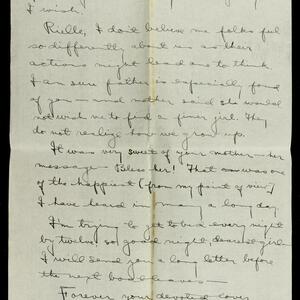 I wish.
Rielle, I don't believe me folks feel
so differently about us as their
actions might lead one to think.
I am sure father is especially fond
of you - and mother said she would
not wish me to find a finer girl. They
do not realize how we grow up.
It was very sweet of your mother - her
message - Bless her! That was one
of the happiest (from my point of view)
I have heard in many a long day
I'm trying to get to bed every night
by twelve, so good night, dearest girl -
I will send you a long letter before
the next boat leaves -
Forever your devoted lover